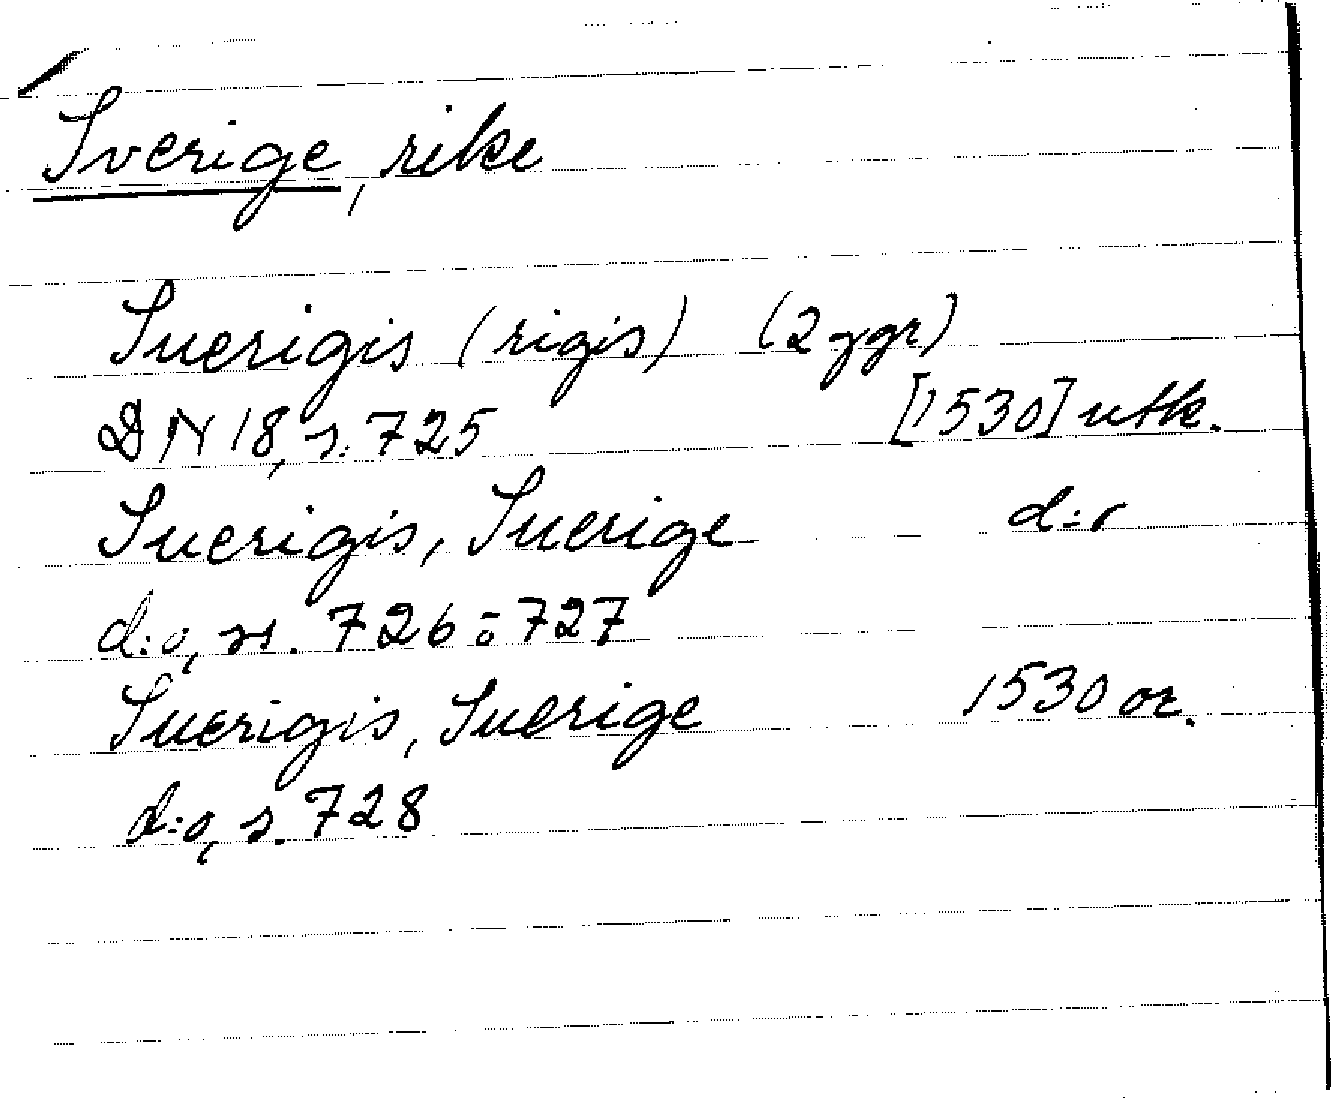 Sverige, rike
Suerigis (rigis) (2 ggr)
DN 18, s. 725 [1530] utk.
Suerigis, Suerige d:o
d:o, ss. 726 o 727
Suerigis, Suerige 1530 or.
d:o, s. 728